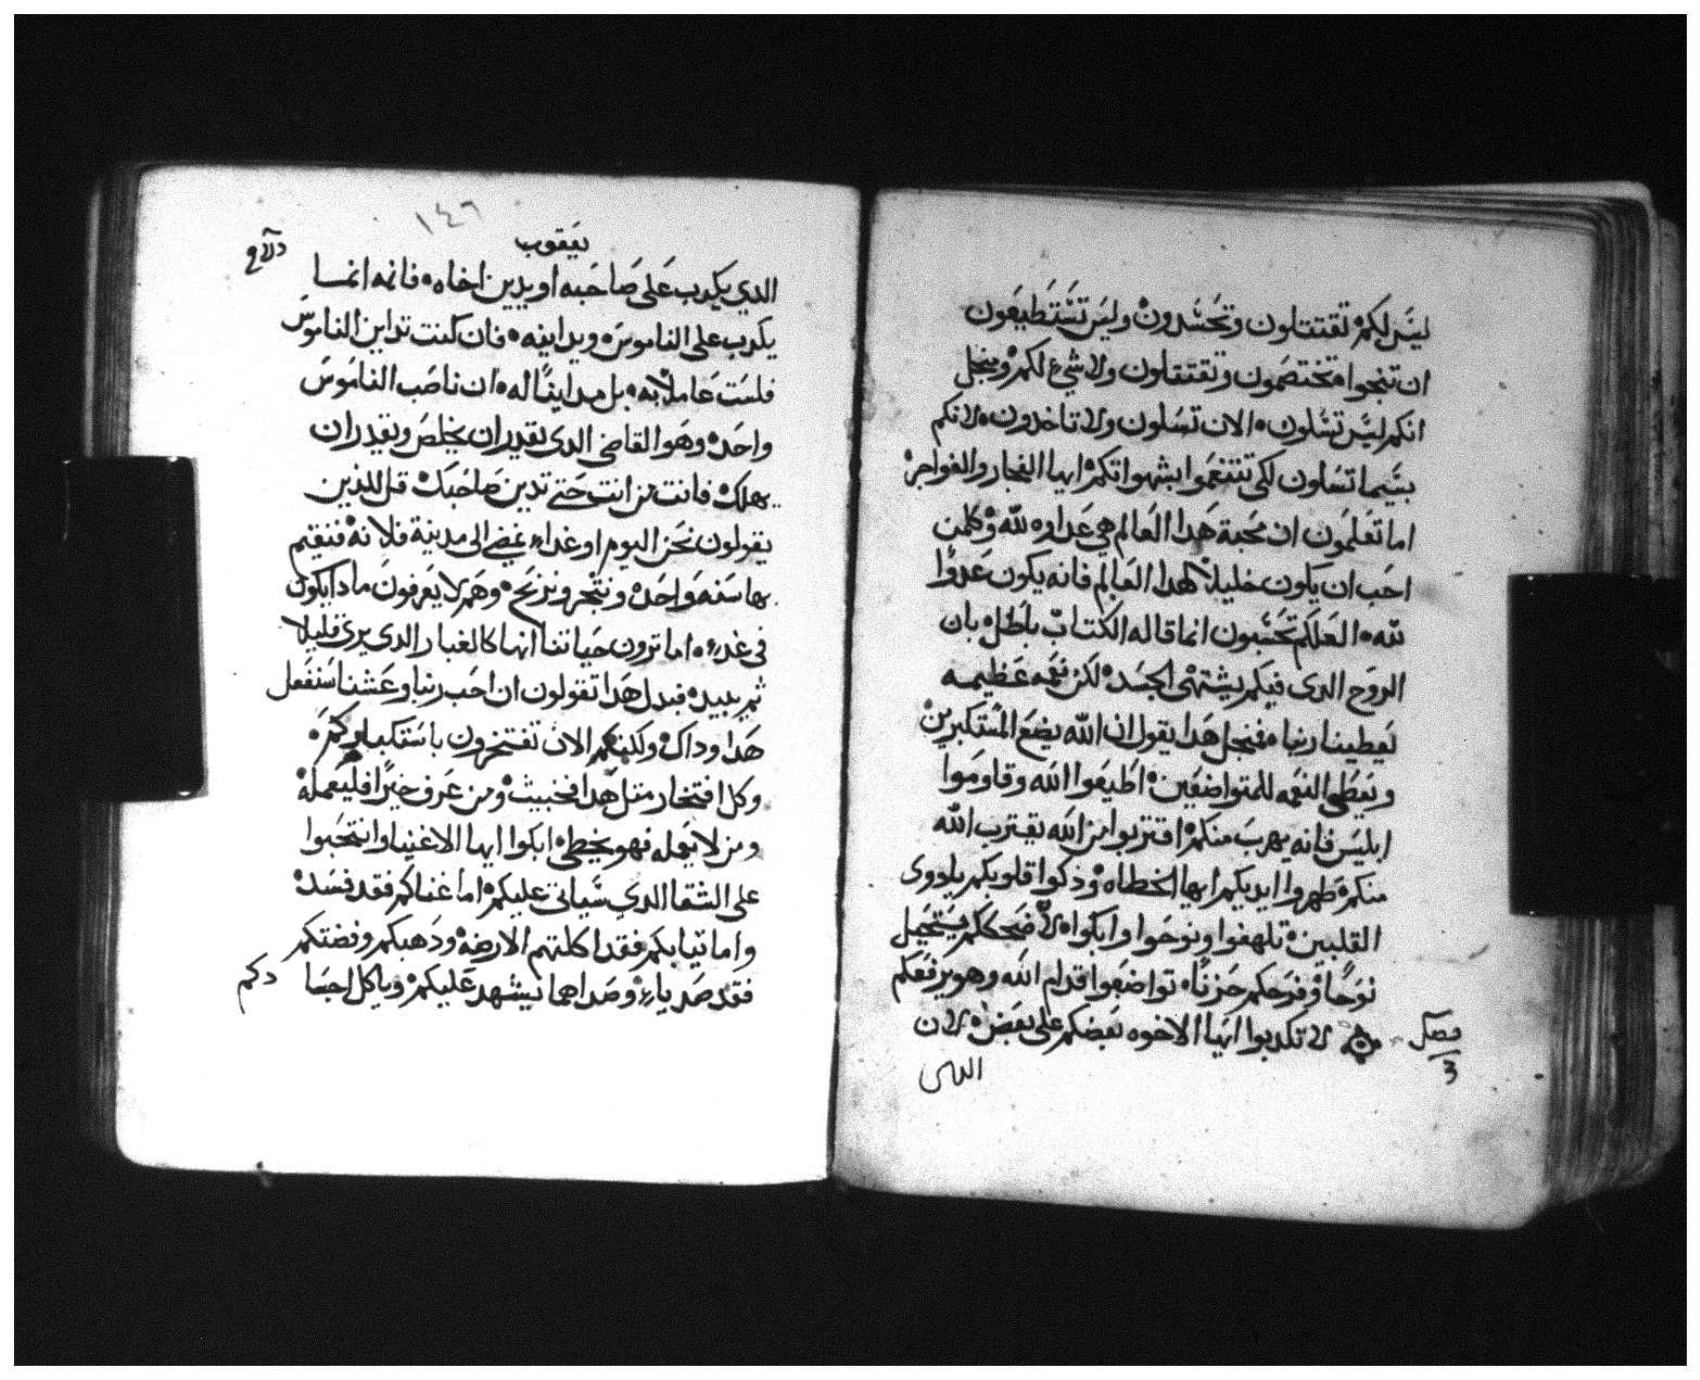 ليس لكم تقتتلون وتحسدون وليس تستطيعون
ان تنجوا تختصمون وتقتتلون ولا شي لكم ومنجل
انكم ليس تسلون الان تسلون ولا تاخدون لانكم
بيسما تسلون لكي تتنعموا بشهواتكم ايها الفجار والفواجر
اما تعلمون ان محبة هدا العالم هي عداوه لله وكلمن
احب ان يكون خليلا لهدا العالم فانه يكون عدوا
لله العلكم تحسبون انما قاله الكتاب باطل بان
الروح الدي فيكم يشتهي الجسد لكن نعمه عظيمه
يعطينا ربنا منجل هدا يقول ان الله يضع المستكبرين
ويعطي النعمه للمتواضعين اطيعوا الله وقاوموا
ابليس فانه يهرب منكم اقتربوا من الله يقترب الله
منكم طهروا ايديكم ايها الخطاه وذكوا قلوبكم يادوي
القلبين تلهفوا ونوحوا وابكوا لان ضحككم يستحيل
نوحا وفرحكم حزنا تواضعوا قدام الله وهو يرفعكم
فصل 3 لا تكدبوا ايها الاخوه بعضكم على بعض لان
الدي
١٤٦
يعقوب
الدي يكدب على صاحبه او يدين اخاه فانه انما
يكدب على الناموس ويداينه فان كنت تداين الناموس
فلست عاملا به بل مداينا له ان ناصب الناموس
واحد وهو القاضي الدي يقدر ان يخلص ويقدر ان
يهلك فانت من انت حتى تدين صاحبك قل للدين
يقولون نحن اليوم او غدا نمضي الى مدينة فلانه فنقيم
بها سنه واحده ونتجر ونربح وهم لا يعرفون مادا يكون
في غد اما ترون حياتنا انها كالغبار الدي يرى قليلا
ثم يبيد فبدل هدا تقولون ان احب ربنا وعشنا سنفعل
هدا وداك ولكنكم الان تفتخرون باستكباركم
وكل افتخار متل هدا فخبيث ومن عرف خيرا فليعمله
ومن لا يعمله فهو يخطي ابكوا ايها الاغنيا وانتحبوا
على الشقا الدي سياتي عليكم اما غناكم فقد فسد
واما تيابكم فقد اكلتهم الارضه ودهبكم وفضتكم
فقد صديا وصداهما يشهد عليكم وياكل اجسا دكم